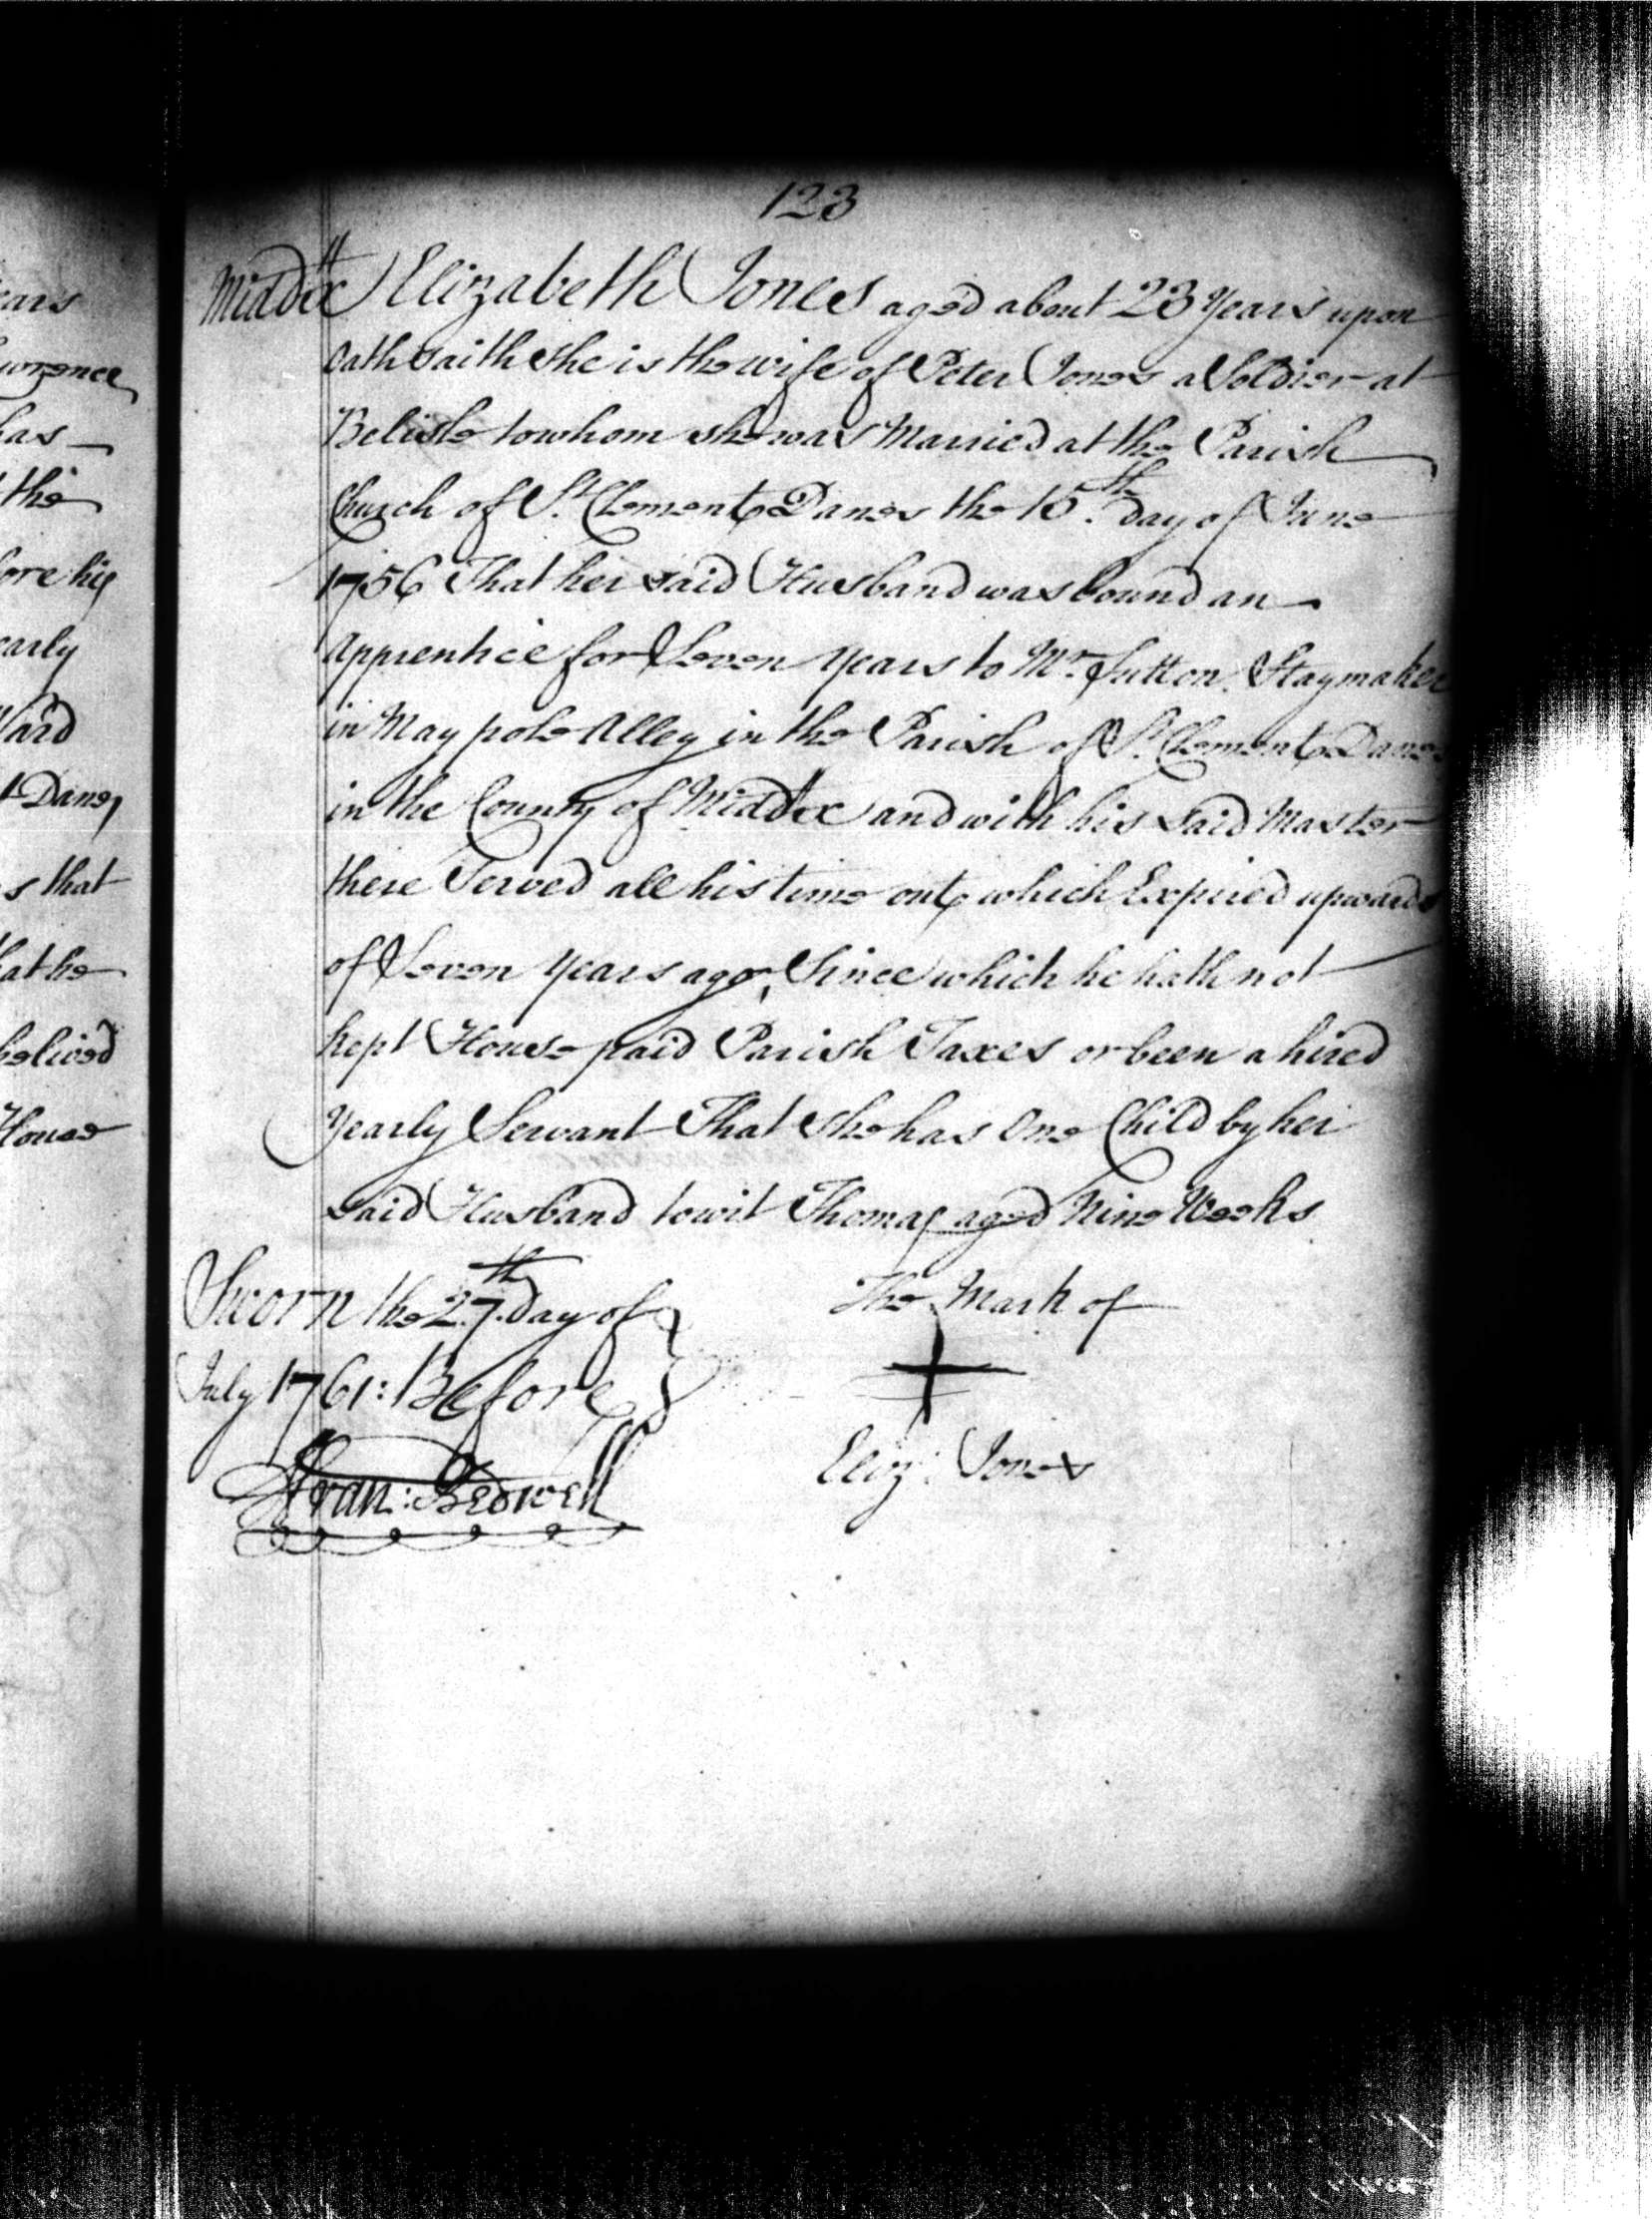 123
Middx Elizabeth Jones aged about 23 Years upon
Oath Saith She is the wife of Peter Jones a Soldier at
Belisle to whom she was Married at the Parish
Church of St. Clement Danes the 15th. day of June
1756 That her said Husband was bound an
Apprentice for Seven Years to Mr. Sutton. Staymaker
in May pole Alley in the Parish of St. Clement Danes
in the County of Middx and with his said Master
there Served all his time out, which Expired upwards
of Seven Years ago, Since which he hath not
kept House paid Parish Taxes or been a hired
Yearly Servant That She has One Child by her
said Husband to wit Thomas aged Nine Weeks
Sworn the 27th. day of
July 1761: Before
Fran: Bedwell
The Mark of
Eliz: Jones
ears
wrence
has
the
fore his
early
Ward
t Danes
s that
that he
belived
House